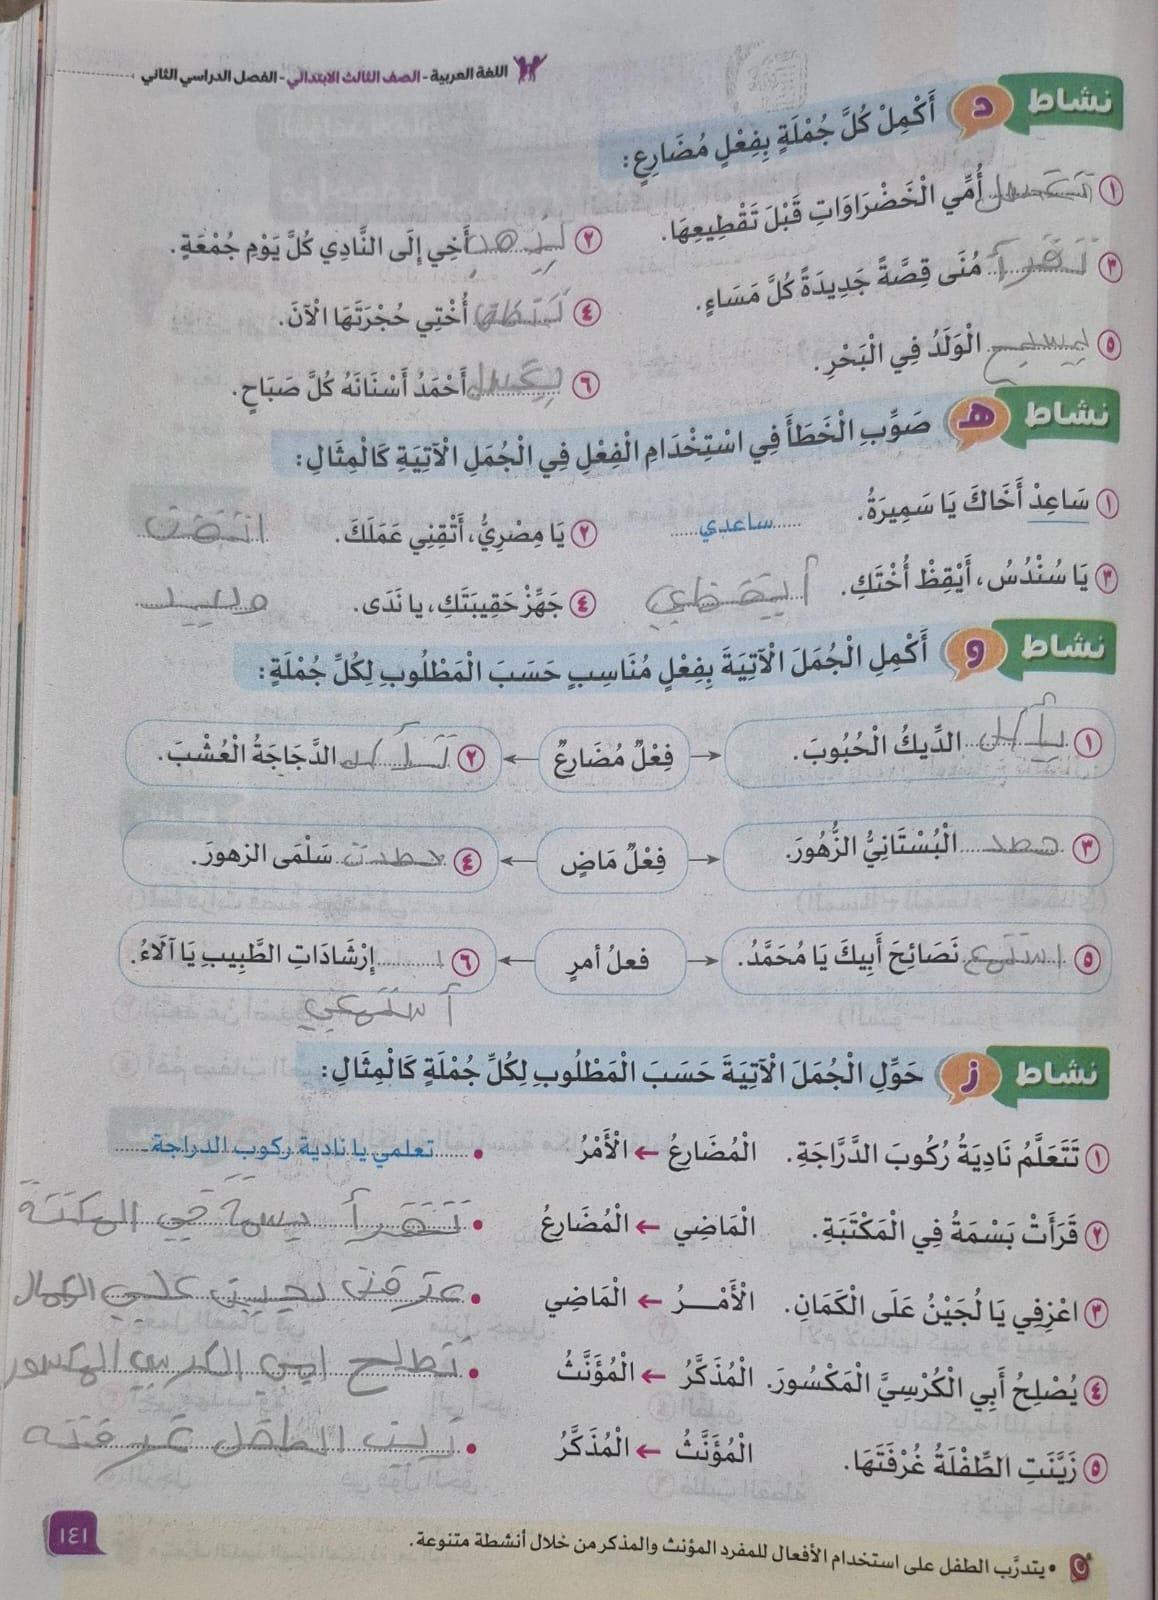 اللغة العربية - الصف الثالث الابتدائي - الفصل الدراسي الثاني
نشاط د أَكْمِلْ كُلَّ جُمْلَةٍ بِفِعْلٍ مُضَارِعٍ:
١ تغسل أُمِّي الْخَضْرَاوَاتِ قَبْلَ تَقْطِيعِهَا.
٢ يذهب أَخِي إِلَى النَّادِي كُلَّ يَوْمِ جُمْعَةٍ.
٣ تقرأ مُنَى قِصَّةً جَدِيدَةً كُلَّ مَسَاءٍ.
٤ أُخْتِي حُجْرَتَهَا الْآنَ.
٥ يسبح الْوَلَدُ فِي الْبَحْرِ.
٦ يغسل أَحْمَدُ أَسْنَانَهُ كُلَّ صَبَاحٍ.
نشاط هـ صَوِّبِ الْخَطَأَ فِي اسْتِخْدَامِ الْفِعْلِ فِي الْجُمَلِ الْآتِيَةِ كَالْمِثَالِ:
١ سَاعِدْ أَخَاكَ يَا سَمِيرَةُ. ساعدي
٢ يَا مِصْرِيُّ، أَتْقِنِي عَمَلَكَ.
٣ يَا سُنْدُسُ، أَيْقِظْ أُخْتَكِ. أيقظي
٤ جَهِّزْ حَقِيبَتَكِ، يا نَدَى.
نشاط و أَكْمِلِ الْجُمَلَ الْآتِيَةَ بِفِعْلٍ مُنَاسِبٍ حَسَبَ الْمَطْلُوبِ لِكُلِّ جُمْلَةٍ:
١ يأكل الدِّيكُ الْحُبُوبَ. فِعْلٌ مُضَارِعٌ ٢ تأكل الدَّجَاجَةُ الْعُشْبَ.
٣ الْبُسْتَانِيُّ الزُّهُورَ. فِعْلٌ مَاضٍ ٤ سَلْمَى الزهورَ.
٥ استمع نَصَائِحَ أَبِيكَ يَا مُحَمَّدُ. فعلُ أمرٍ ٦ إِرْشَادَاتِ الطَّبِيبِ يَا آلَاءُ.
أستمعي
نشاط ز حَوِّلِ الْجُمَلَ الْآتِيَةَ حَسَبَ الْمَطْلُوبِ لِكُلِّ جُمْلَةٍ كَالْمِثَالِ:
١ تَتَعَلَّمُ نَادِيَةُ رُكُوبَ الدَّرَّاجَةِ. الْمُضَارِعُ ← الْأَمْرُ • تعلمي يا نادية ركوب الدراجة
٢ قَرَأَتْ بَسْمَةُ فِي الْمَكْتَبَةِ. الْمَاضِي ← الْمُضَارِعُ • تقرأ بسمة في المكتبة
٣ اعْزِفِي يَا لُجَيْنُ عَلَى الْكَمَانِ. الْأَمْـــرُ ← الْمَاضِي • على
٤ يُصْلِحُ أَبِي الْكُرْسِيَّ الْمَكْسُورَ. الْمُذَكَّرُ ← الْمُؤَنَّثُ • الكرسي المكسور
٥ زَيَّنَتِ الطِّفْلَةُ غُرْفَتَهَا. الْمُؤَنَّثُ ← الْمُذَكَّرُ • زين الطفل غرفته
• يتدرَّب الطفل على استخدام الأفعال للمفرد المؤنث والمذكر من خلال أنشطة متنوعة.
١٤١